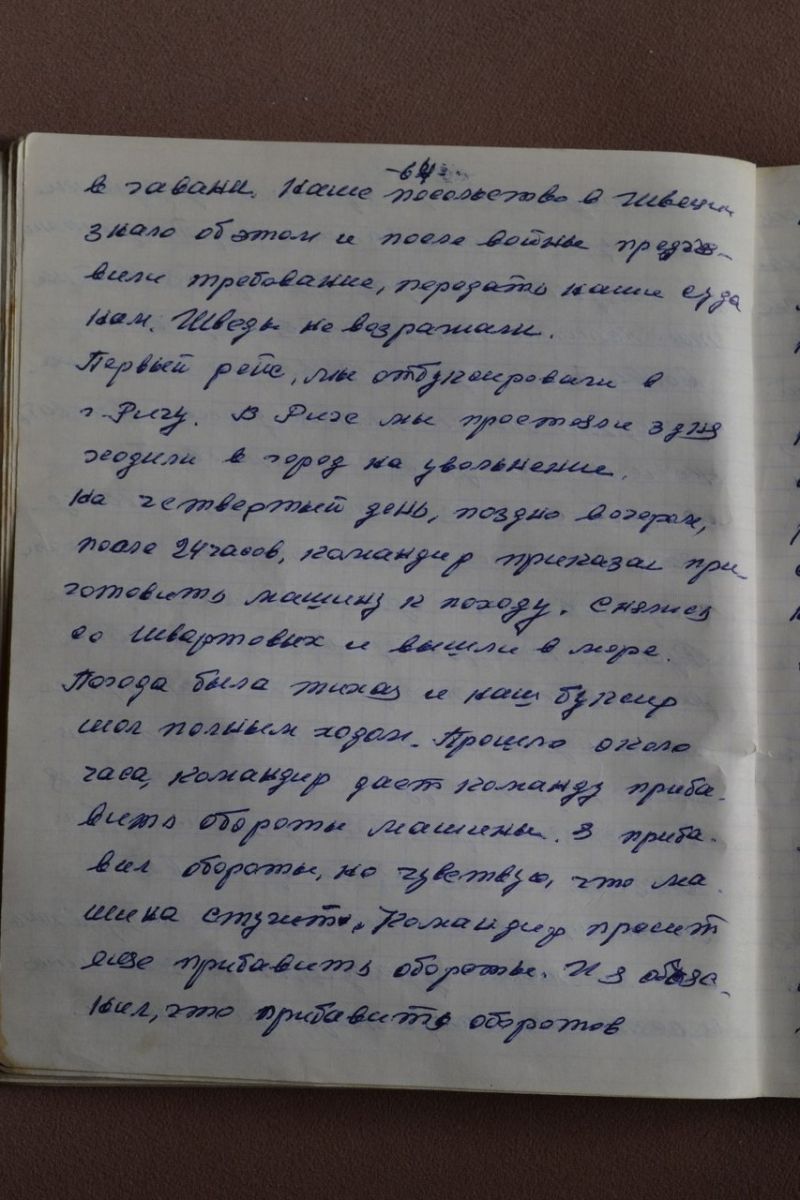 -64-
в гавани. Наше посольство в Швеции
знало об этом и после войны предъя-
вили требование, передать наши суда
нам. Шведы не возражали.
Первый рейс, мы отбуксировали в
г. Ригу. В Риге мы простояли 3 дня
ходили в город на увольнение.
На четвертый день, поздно вечером,
после 24 часов, командир приказал при
готовить машину к походу. Снялись
со швартовых и вышли в море.
Погода была тихая и наш буксир
шол полным ходом. Прошло около
часа, командир дает команду приба-
вить обороты машины. Я приба-
вил обороты, но чувствую, что ма-
шина стучит. Командир просит
еще прибавить обороты. И я объяс-
нил, что прибавить оборотов